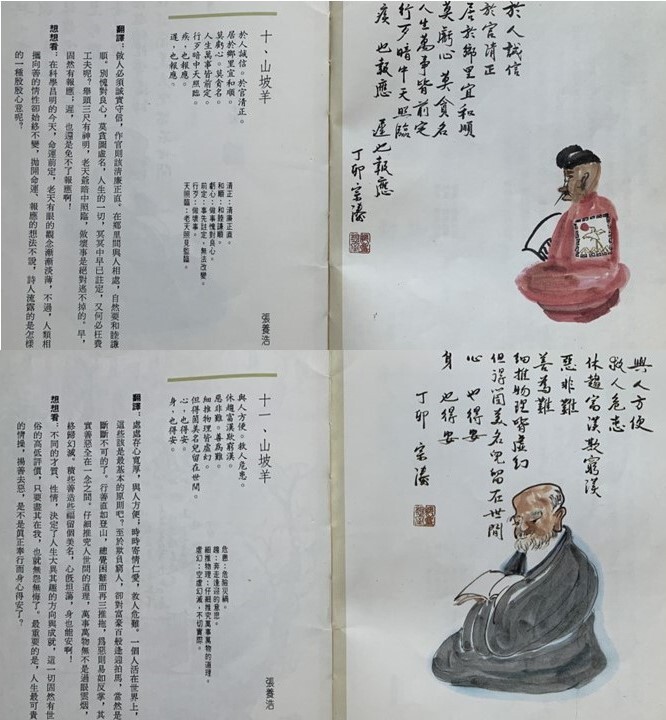 於人誠信
於官清正
居於鄉里宜和順
莫虧心莫貪名
人生萬事皆前定
行歹暗中天照臨
疾 也報應 遲 也報應
丁卯 宗濤
十、山坡羊
張養浩
於人誠信。於官清正。
居於鄉里宜和順。
莫虧心。莫貪名。
人生萬事皆前定。
行歹暗中天照臨。
疾,也報應。
遲,也報應。
清正:清廉正直。
和順:和睦謙順。
虧心:做事愧對良心。
前定:事先註定,無法改變。
行歹:做壞事。
天照臨:老天照見監臨。
翻譯:做人必須誠實守信,作官則該清廉正直。在鄉里間與人相處,自然要和睦謙
順。別愧對良心,莫貪圖虛名,人生的一切,冥冥中早已註定,又何必枉費
工夫呢?舉頭三尺有神明,老天爺暗中照臨,做壞事是絕對逃不掉的。早,
固然有報應;遲,也還是免不了報應啊!
想想看:在科學昌明的今天,命運前定,老天有眼的觀念漸漸淡薄,不過,人類相
攜向善的情性卻始終不變,拋開命運、報應的想法不說,詩人流露的是怎樣
的一種殷殷心意呢?
與人方便
救人危患
休趨富漢欺窮漢
惡非難
善為難
細推物理皆虛幻
但得箇美名兒留在世間
心 也得安
身 也得安
丁卯 宗濤
十一、山坡羊
張養浩
與人方便。救人危患。
休趨富漢欺窮漢。
惡非難。善為難。
細推物理皆虛幻。
但得箇美名兒留在世間。
心,也得安。
身,也得安。
危患:危險災禍。
趨:奔走逢迎的意思。
細推物理:仔細推究萬事萬物的道理。
虛幻:空虛幻滅,不切實際。
翻譯:處處存心寬厚,與人方便;時時寄情仁愛,救人危難。一個人活在世界上,
這些該是最基本的原則吧?至於欺負窮人,卻對富豪百般逢迎拍馬,當然是
斷斷不可的了。行善直如登山,總覺困難而再三推拖,爲惡則易如反掌,其
實善惡全在一念之間。仔細推究人世間的道理,萬事萬物無不是過眼雲煙,
終歸幻滅。積些善造些福留個美名,心既坦蕩,身也能安啊!
想想看:不同的才質、性情,決定了人生大異其趣的方向與成就,這一切固然有世
俗的高低評價,只要盡其在我,也就無怨無悔了。最重要的是,人生最可貴
的情操,揚善去惡,是不是眞正奉行而身心得安了?